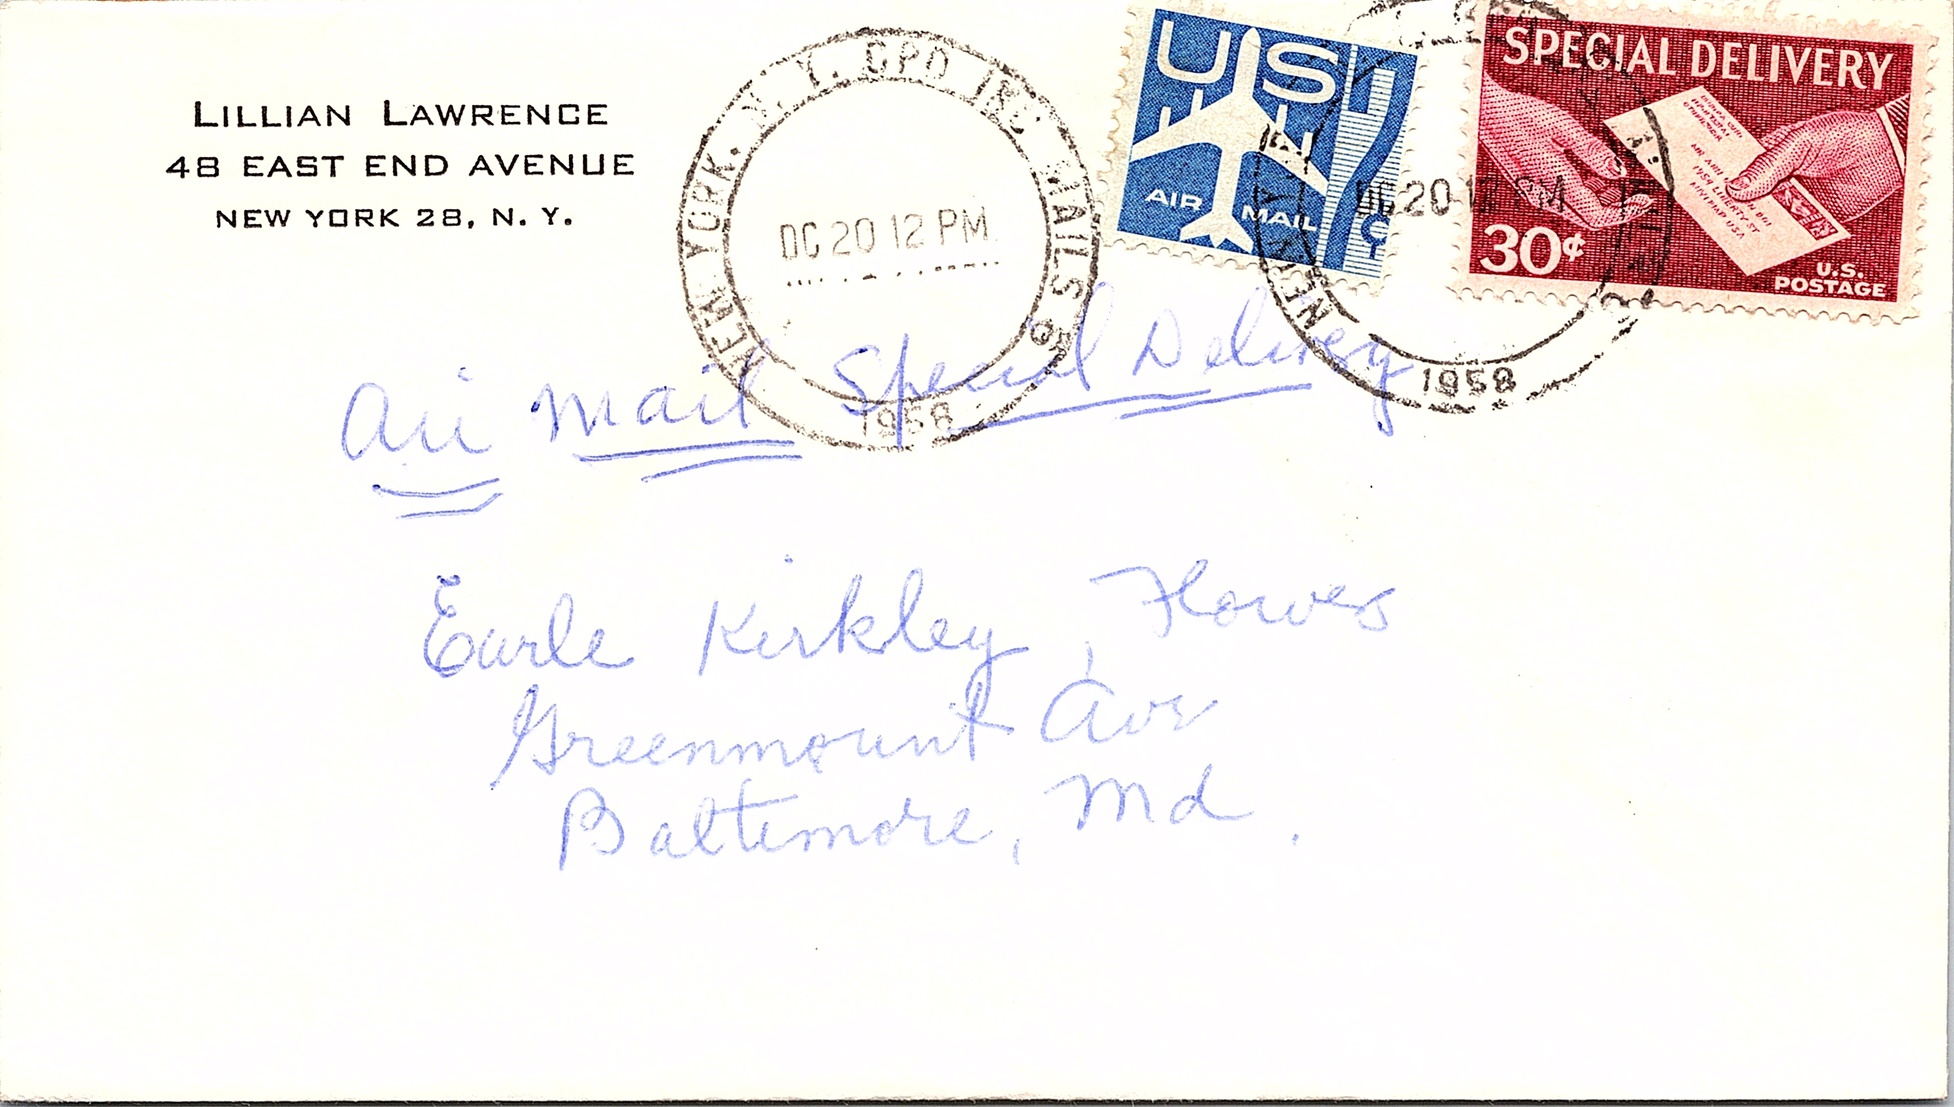 LILLIAN LAWRENCE
48 EAST END AVENUE
NEW YORK 28, N. Y.
NEW YORK, N. Y. GPO MAILS
DC 20 12 PM
1958
US
7¢
AIR MAIL
NEW
DC 20 12 PM
1958
SPECIAL DELIVERY
30¢
U.S.
POSTAGE
Air Mail Special Delivery
Earle Kirkley, Flowers
Greenmount Ave
Baltimore, Md.